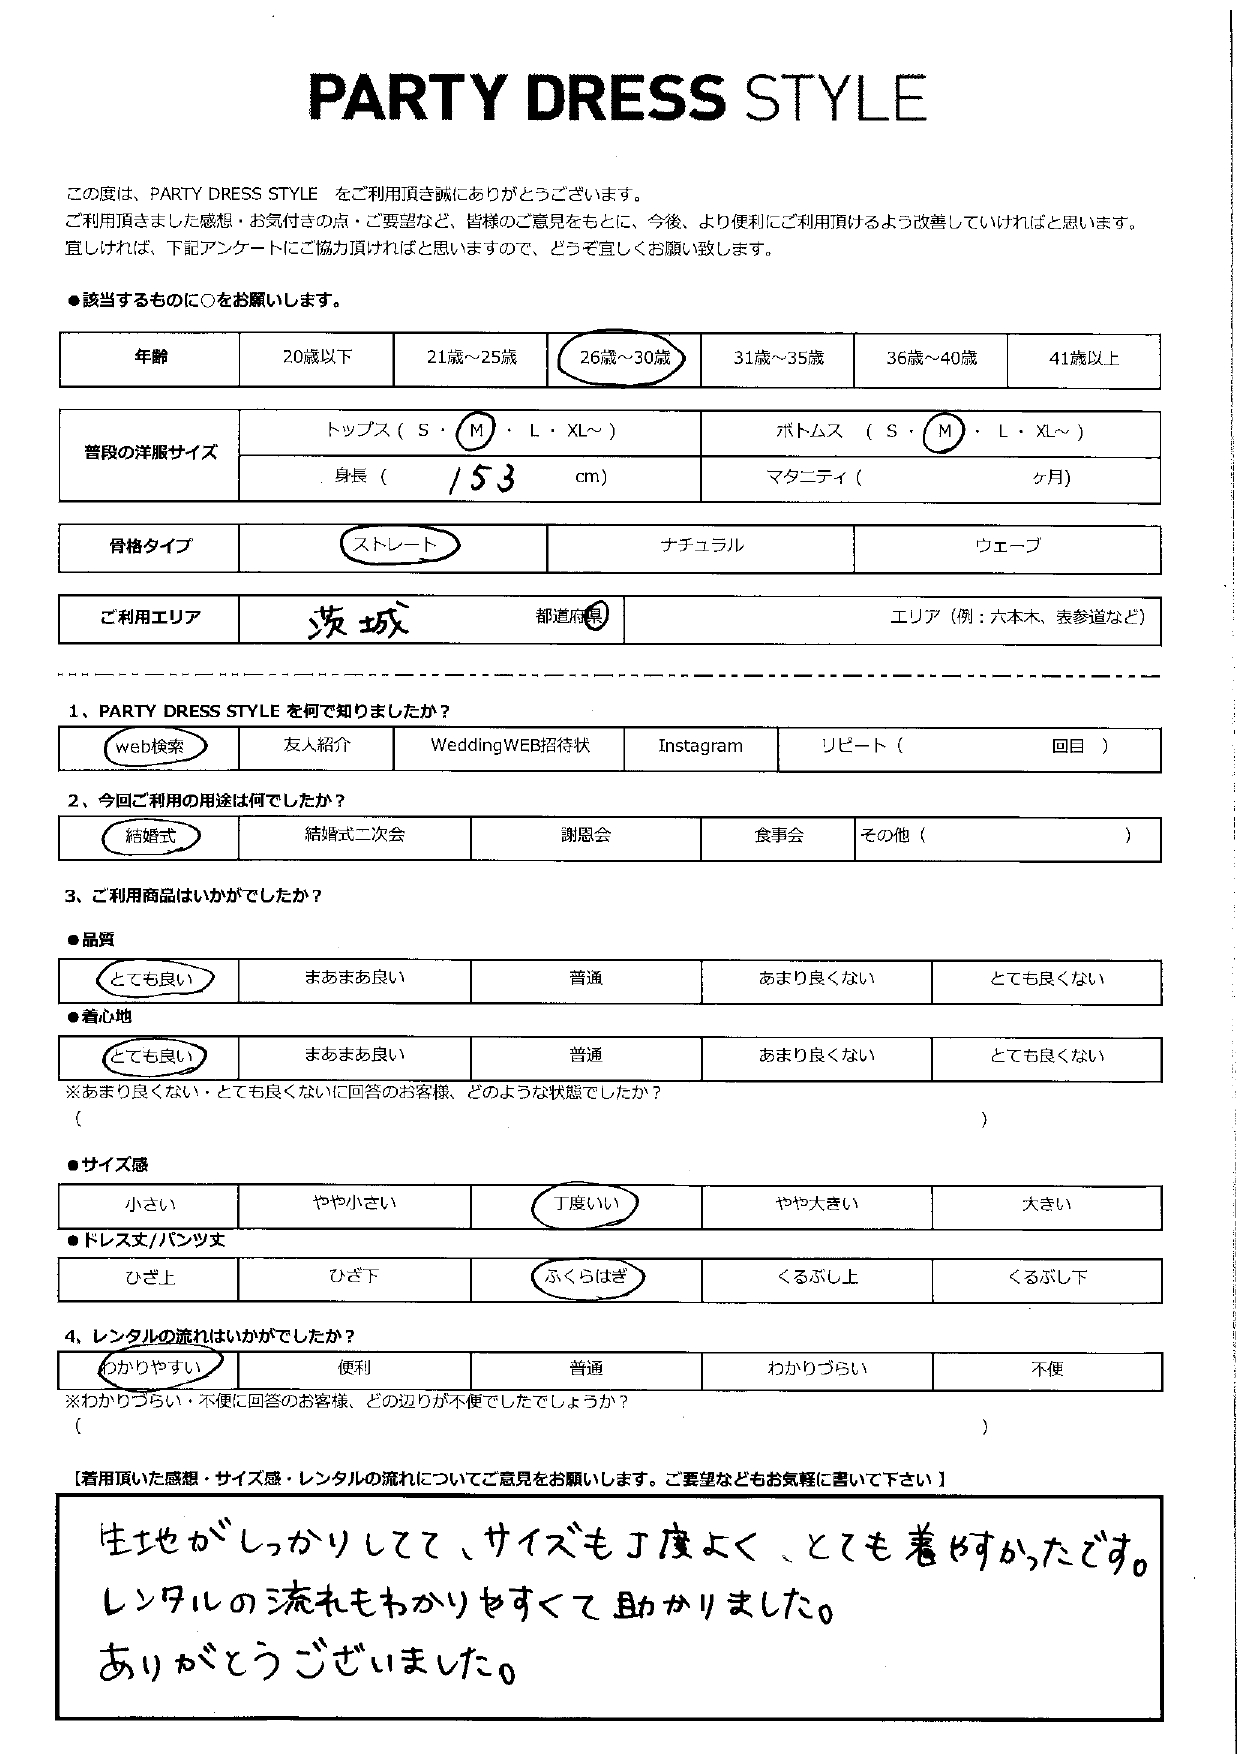 PARTY DRESS STYLE
この度は、PARTY DRESS STYLE をご利用頂き誠にありがとうございます。
ご利用頂きました感想・お気付きの点・ご要望など、皆様のご意見をもとに、今後、より便利にご利用頂けるよう改善していければと思います。
宜しければ、下記アンケートにご協力頂ければと思いますので、どうぞ宜しくお願い致します。
●該当するものに○をお願いします。
年齢 20歳以下 21歳～25歳 26歳～30歳 31歳～35歳 36歳～40歳 41歳以上
普段の洋服サイズ トップス ( S ・ M ・ L ・ XL～ ) ボトムス ( S ・ M ・ L ・ XL～ )
身長 ( 153 cm) マタニティ ( ヶ月)
骨格タイプ ストレート ナチュラル ウェーブ
ご利用エリア 茨城 都道府県 エリア（例：六本木、表参道など）
1、PARTY DRESS STYLE を何で知りましたか？
web検索 友人紹介 WeddingWEB招待状 Instagram リピート ( 回目 )
2、今回ご利用の用途は何でしたか？
結婚式 結婚式二次会 謝恩会 食事会 その他 ( )
3、ご利用商品はいかがでしたか？
●品質
とても良い まあまあ良い 普通 あまり良くない とても良くない
●着心地
とても良い まあまあ良い 普通 あまり良くない とても良くない
※あまり良くない・とても良くないに回答のお客様、どのような状態でしたか？
( )
●サイズ感
小さい やや小さい 丁度いい やや大きい 大きい
●ドレス丈/パンツ丈
ひざ上 ひざ下 ふくらはぎ くるぶし上 くるぶし下
4、レンタルの流れはいかがでしたか？
わかりやすい 便利 普通 わかりづらい 不便
※わかりづらい・不便に回答のお客様、どの辺りが不便でしたでしょうか？
( )
【着用頂いた感想・サイズ感・レンタルの流れについてご意見をお願いします。ご要望などもお気軽に書いて下さい 】
生地がしっかりしてて、サイズも丁度よく、とても着やすかったです。
レンタルの流れもわかりやすくて助かりました。
ありがとうございました。